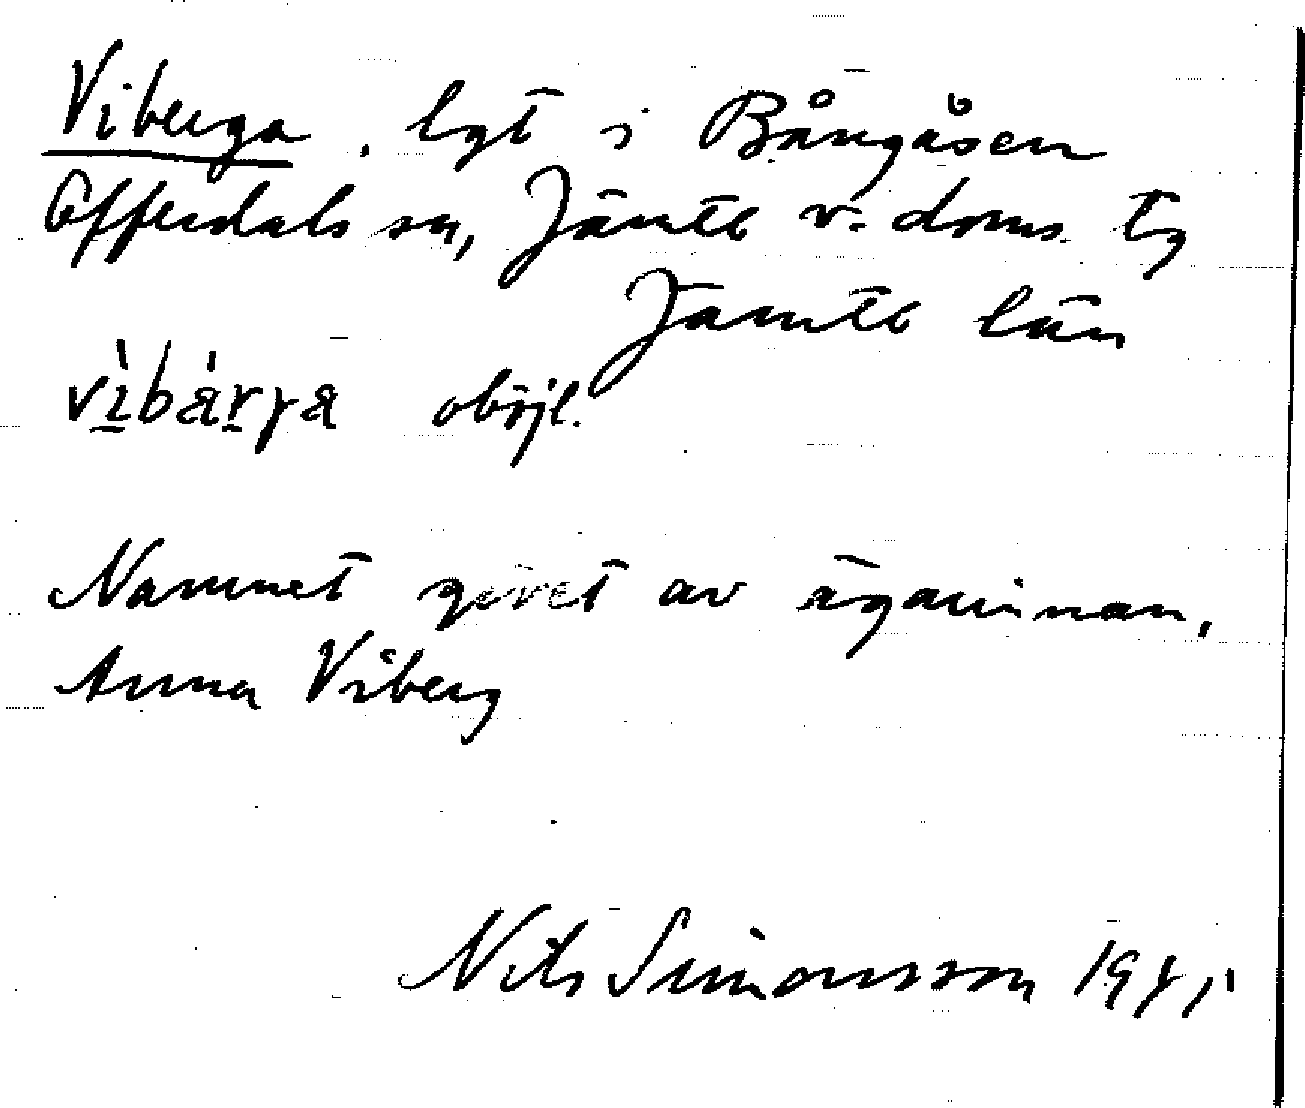 Viberga. lgt i Bångåsen
Offerdals sn, Jämtl v. doms. tg
Jämtl län
vìbárya oböjl.
Namnet givet av ägarinnan,
Anna Viberg
Nils Simonsson